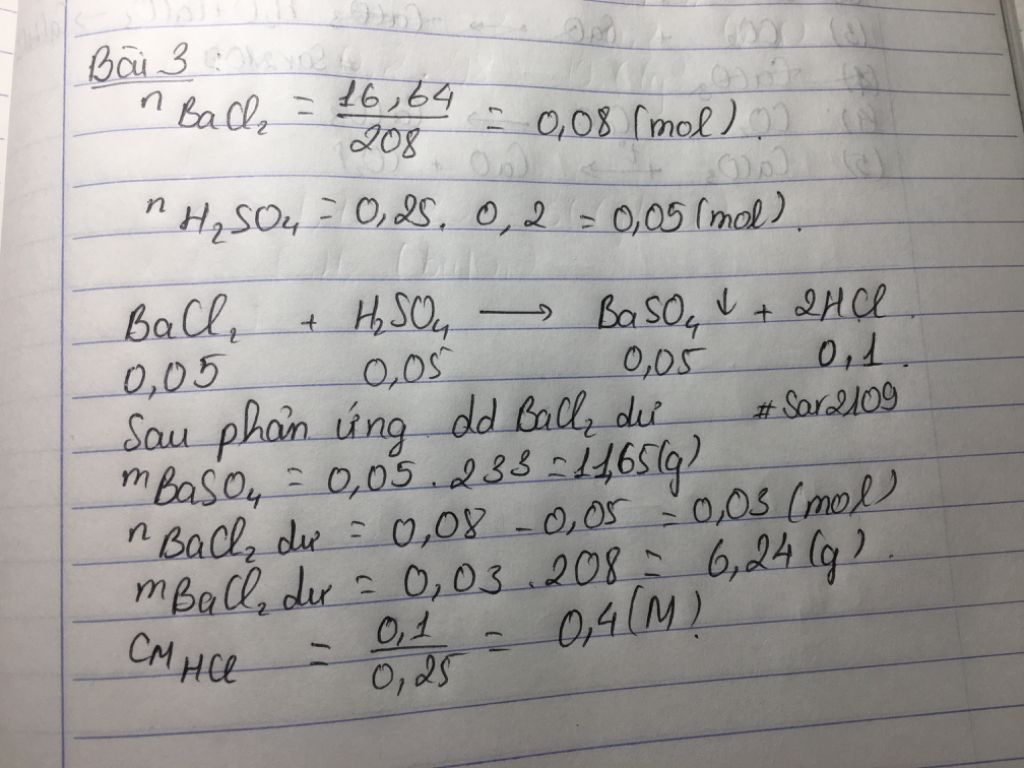 Bài 3:
n BaCl2 = 16,64 / 208 = 0,08 (mol).
n H2SO4 = 0,25. 0,2 = 0,05 (mol).
BaCl2 + H2SO4 ⟶ BaSO4 ↓ + 2HCl.
0,05 0,05 0,05 0,1.
Sau phản ứng dd BaCl2 dư #Sar2109
mBaSO4 = 0,05 . 233 = 11,65(g)
nBaCl2 dư = 0,08 - 0,05 = 0,03 (mol)
mBaCl2 dư = 0,03 . 208 = 6,24 (g).
CM HCl = 0,1 / 0,25 = 0,4 (M)!